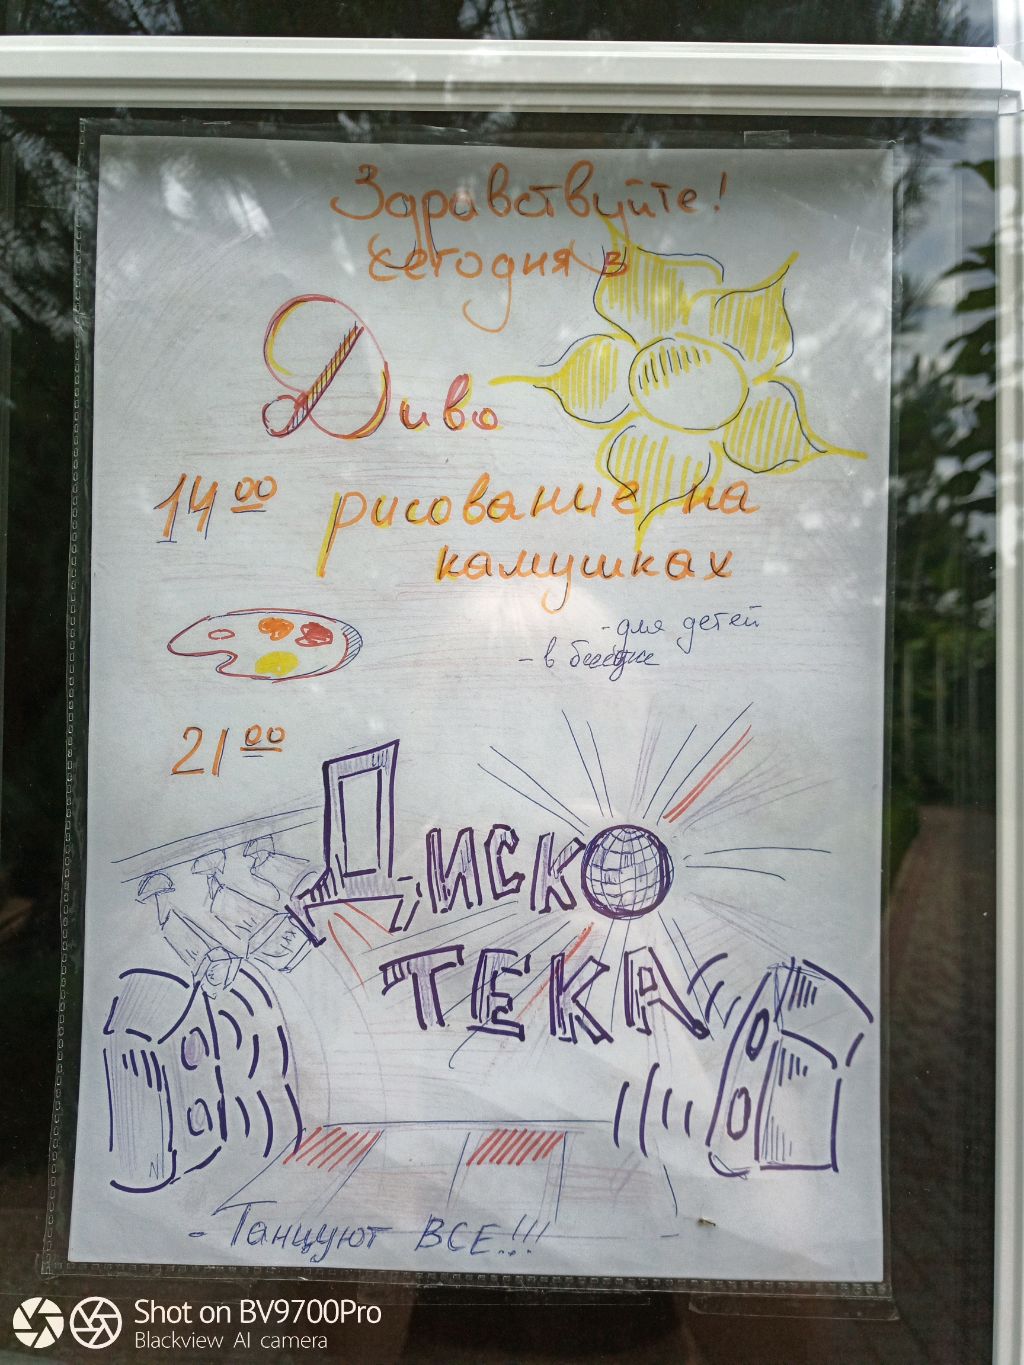 Здравствуйте!
сегодня в
Диво
14 00 рисование на
камушках
- для детей
- в
21 00
ДИСКО
ТЕКА
- Танцуют ВСЕ!!!
Shot on BV9700Pro
Blackview AI camera